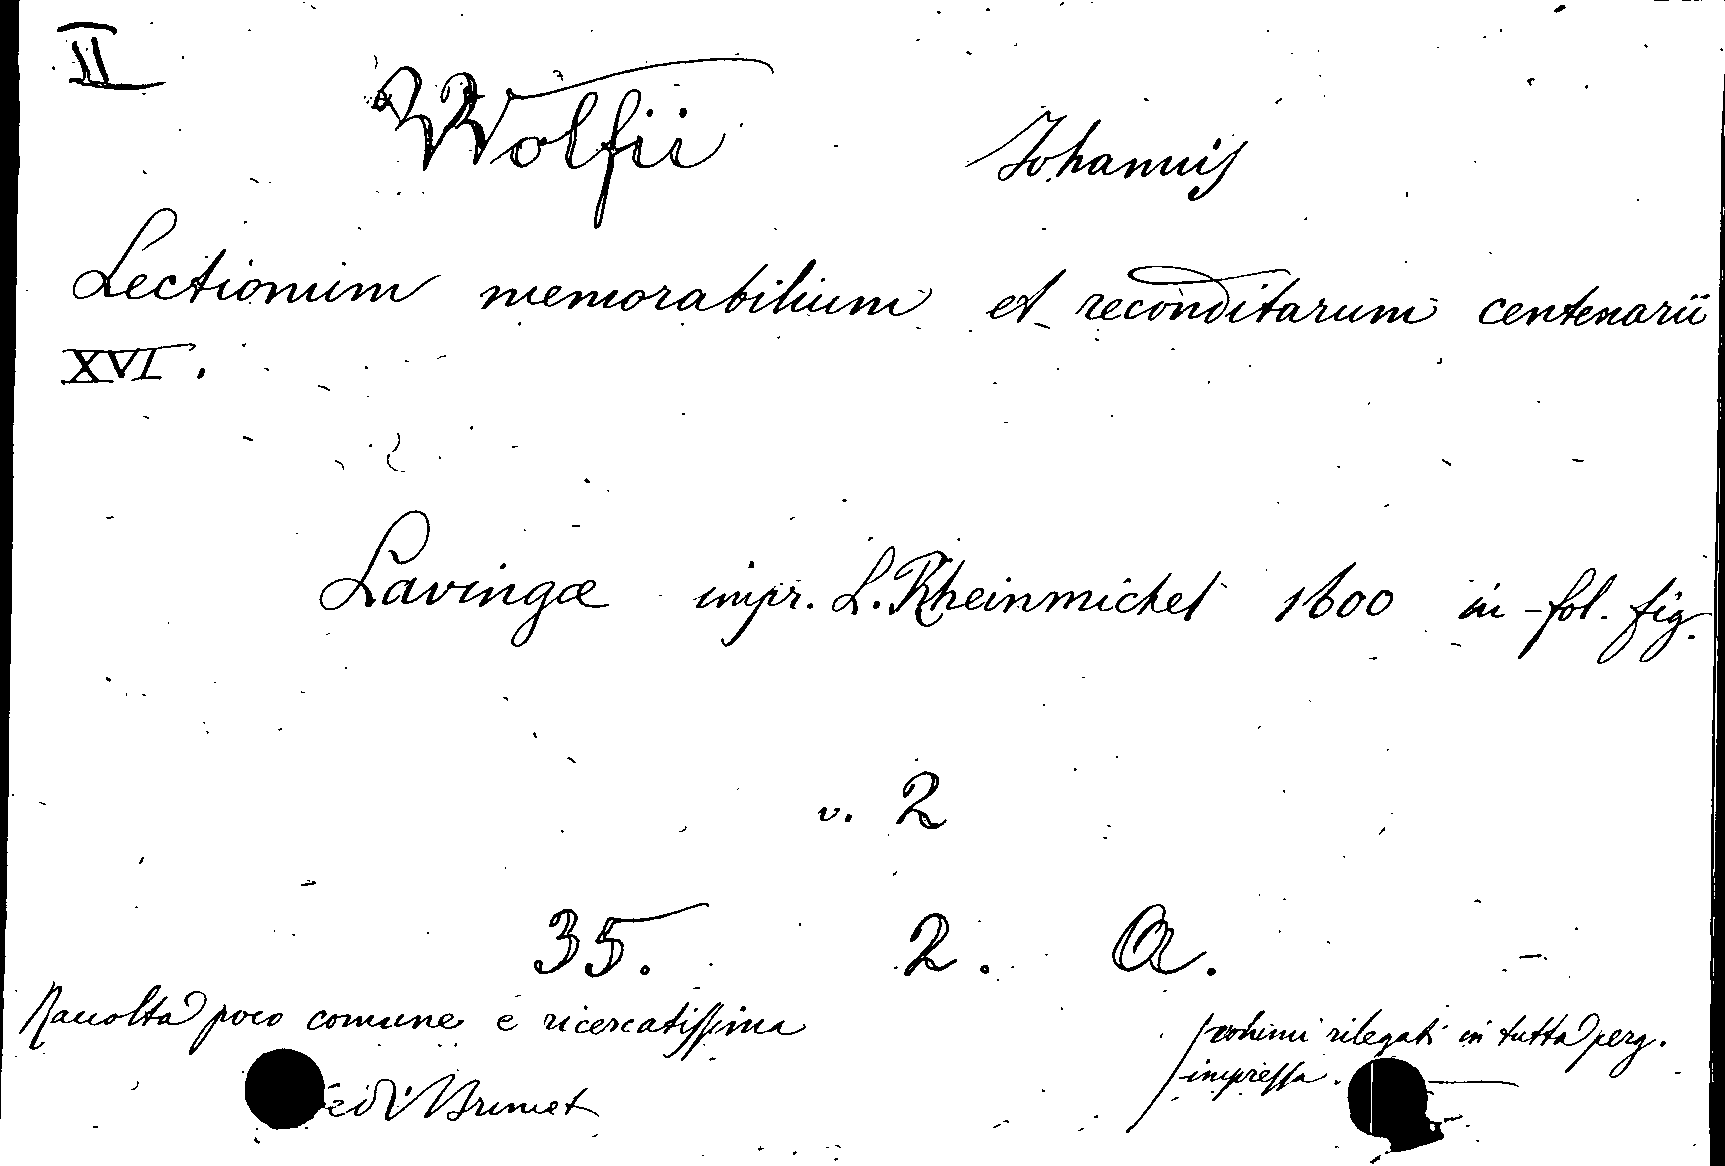 II
Wolfii Johannis
Lectionum memorabilium et reconditarum centenarii
XVI.
Lavingæ impr. L. Rheinmichel 1600 in-fol. fig.
v. 2
35. 2. A.
Raccolta poco comune e ricercatissima
volumi rilegati in tutta perg.
impressa.
Brunet